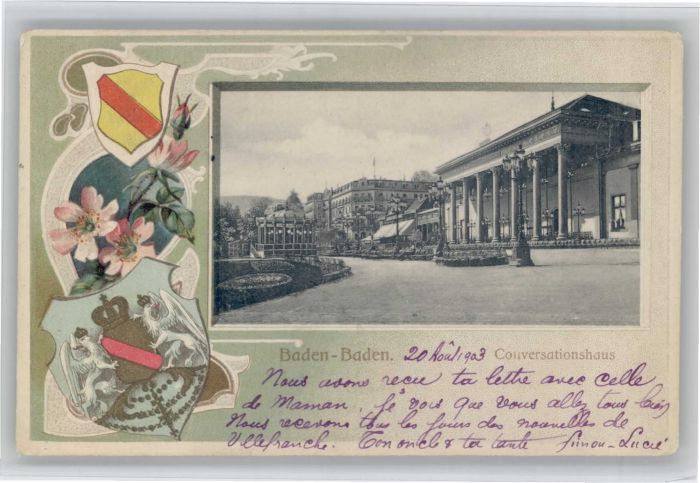 Baden-Baden. 20 Août 1903 Conversationshaus
Nous avons reçu ta lettre avec celle
de Maman, je vois que vous allez tous bien
Nous recevons tous les jours des nouvelles de
Villefranche. Ton oncle & ta tante Simon-Lucie